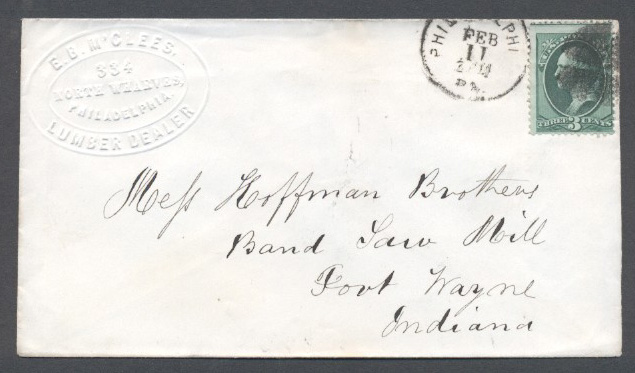 E.B. McCLEES.
334
NORTH WHARVES,
PHILADELPHIA.
LUMBER DEALER
PHILADELPHI
FEB
11
PA.
THREE 3 CENTS
Mess Hoffman Brothers
Band Saw Mill
Fort Wayne
Indiana